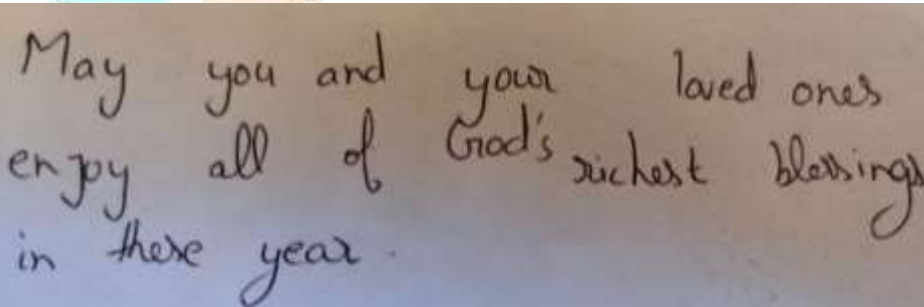 May you and your loved ones
enjoy all of God's richest blessings
in there year.